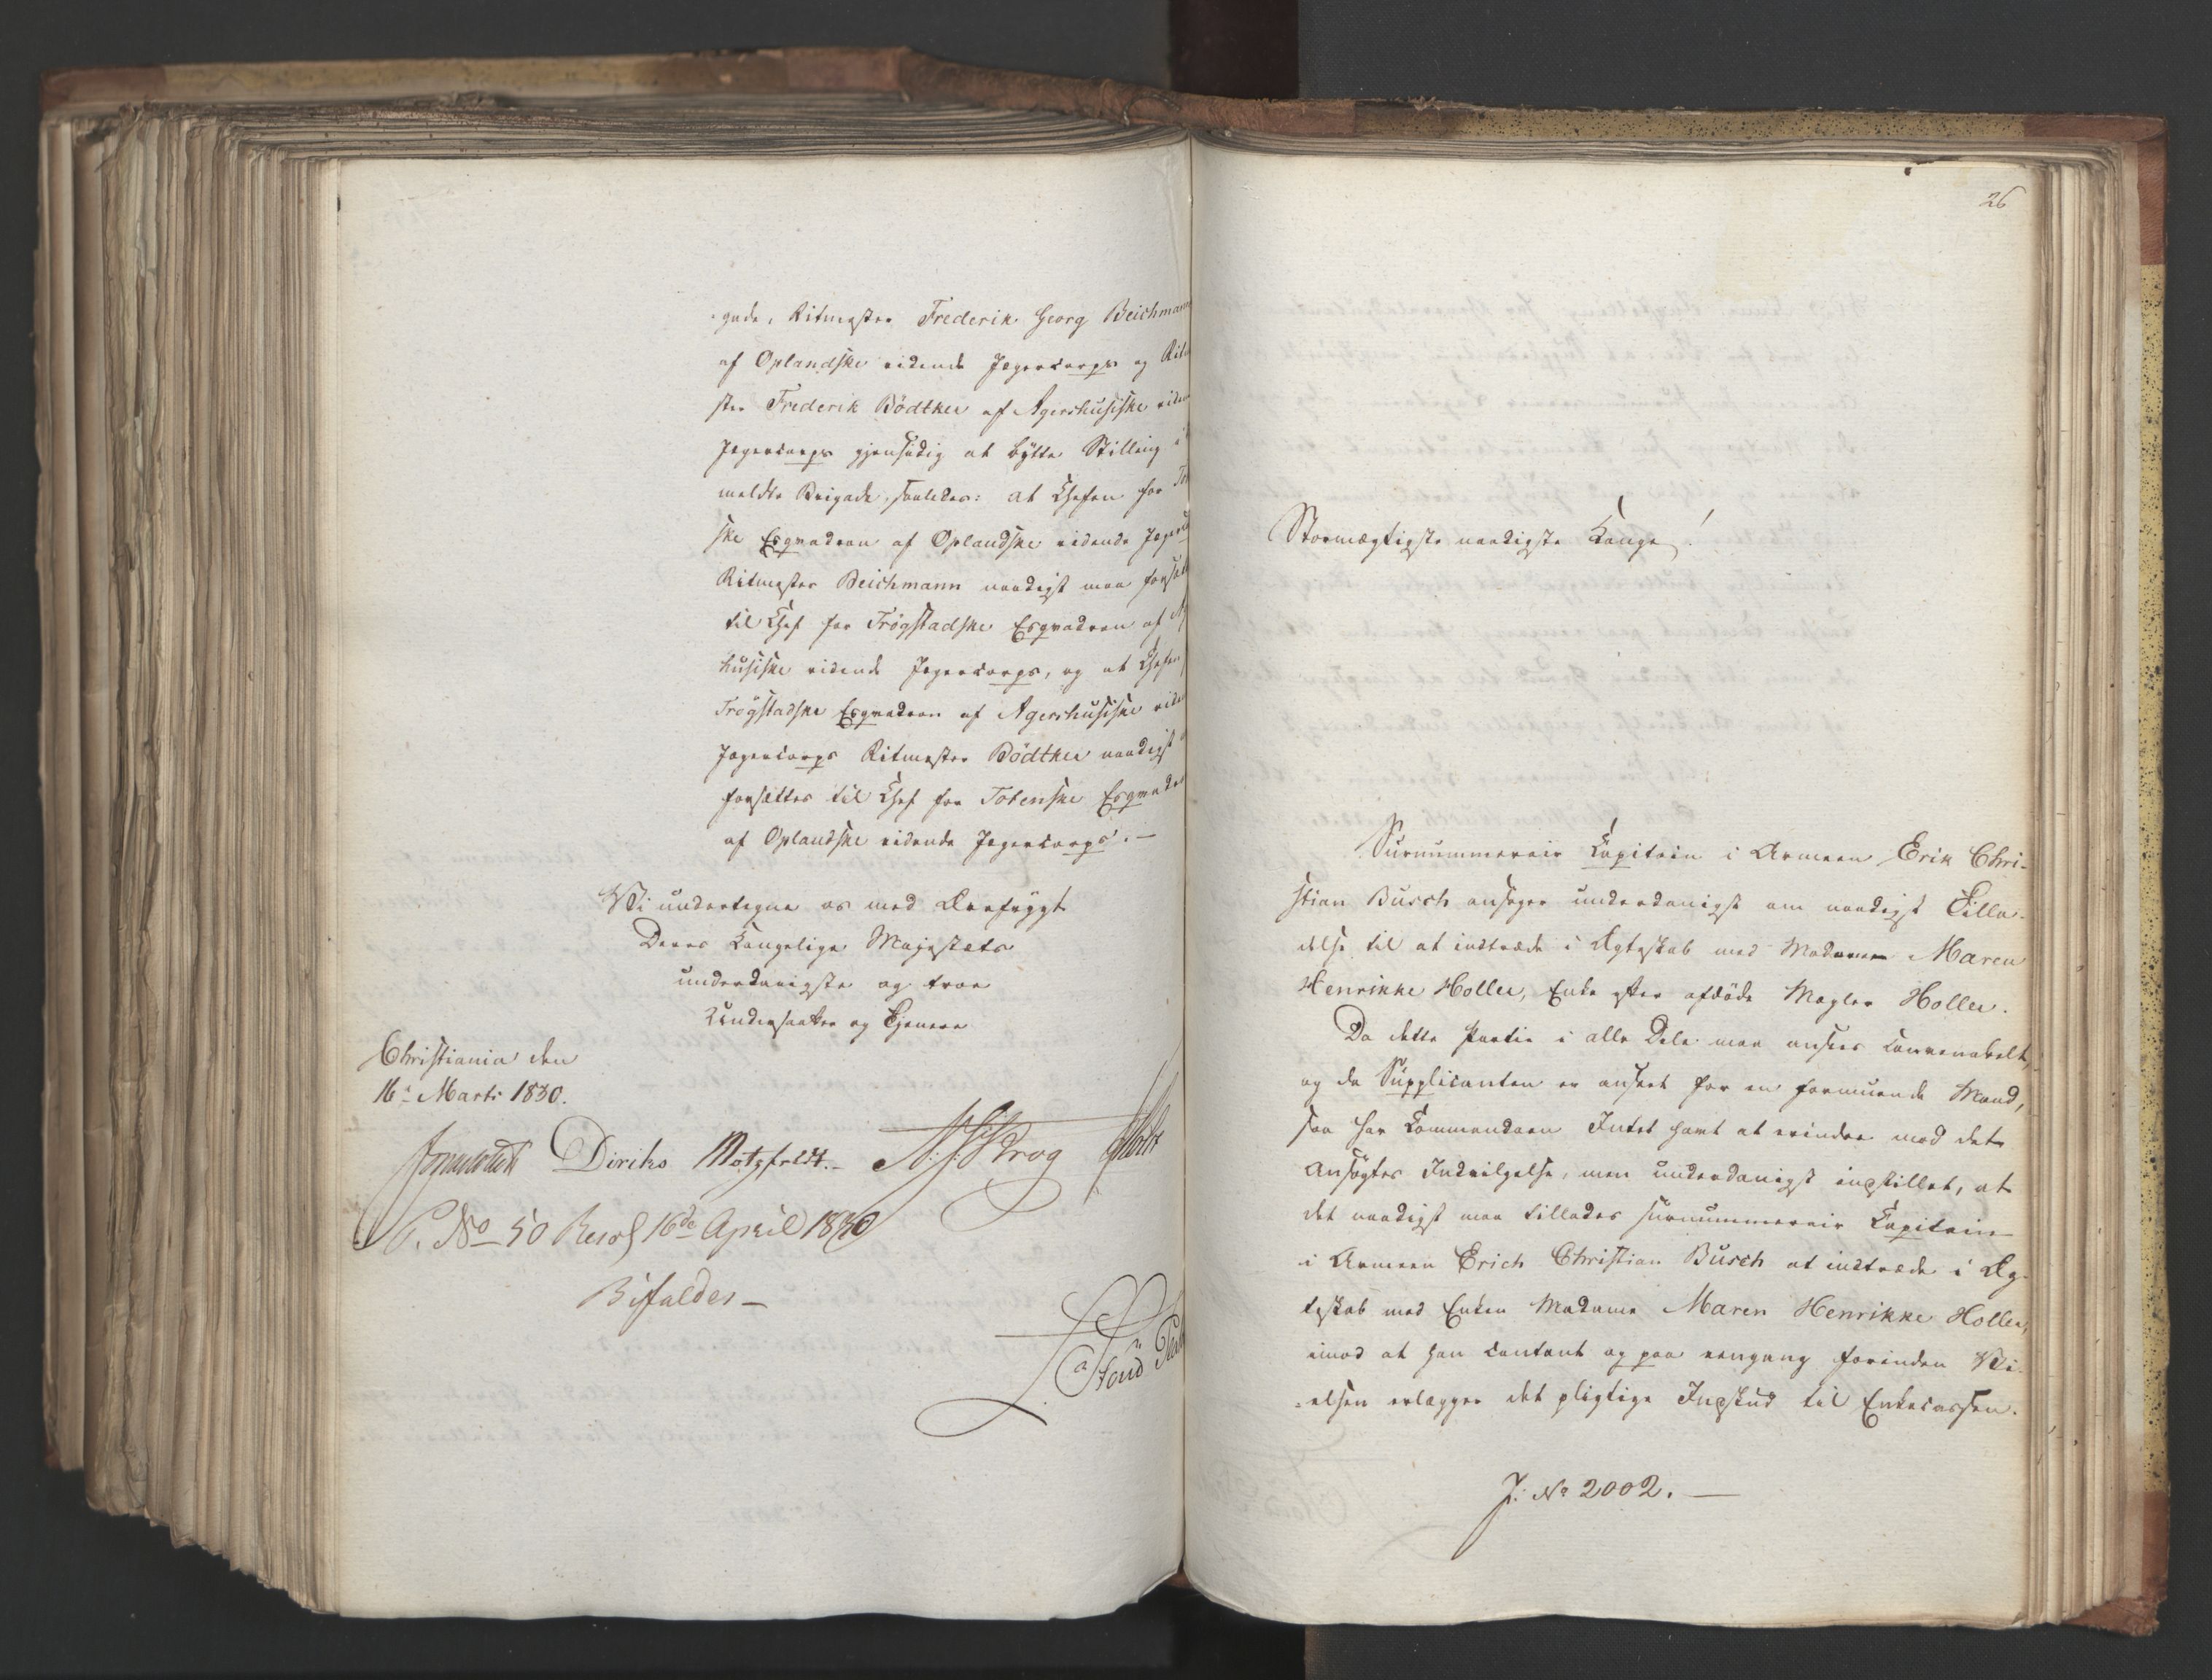 gade, Ritmester Frederik Georg Beichmann
af Oplandske ridende Jægercorps og Ritme
ster Frederik Bödtker af Agershusiske riden
Jægercorps gjensidig at bÿtte Stilling i
meldte Brigade, saaledes: at Chefen for To
ske Esqvadron af Oplandske ridende Jæger
Ritmester Beichmann naadigst maa forsætt
til Chef for Trögstadske Esqvadron af Ag
husiske ridende Jægercorps, og at Chefen
Trögstadske Esqvadron af Agershusiske ride
Jægercorps Ritmester Bödtker naadigst
forsættes til Chef for Totenske Esqvadro
af Oplandske ridende Jægercorps. —
Vi undertegne os med Ærefrÿgt
Deres Kongelige Majestæts
underdanigste og troe
Undersaatter og Tjenere
Christiania den
16de Marts 1830.
Diriks Motzfeldt. N. J. Krog Holst
P. No 50 Resol 16de April 1830
Bifaldes —
26
Stormægtigste naadigste Konge!
Surnummerair Capitain i Armeen Erik Chri-
stian Busch ansøger underdanigst om naadigst Tilla-
delse til at indtræde i Ægteskab med Madame Maren
Henrikke Holler, Enke efter afdöde Mægler Holler.
Da dette Partie i alle Dele maa ansees convenabelt,
og da Supplicanten er anseet for en formuende Mand,
saa har Commandoen Intet havt at erindre mod det
Ansøgtes Indvilgelse, men underdanigst indstillet, at
det naadigst maa tillades surnummerair Capitain
i Armeen Erich Christian Busch at indtræde i Æg-
teskab med Enken Madame Maren Henrikke Holler,
imod at han contant og paa eengang forinden Vi-
elsen erlægger det pligtige Indskud til Enkecassen.
J. No 2002. —